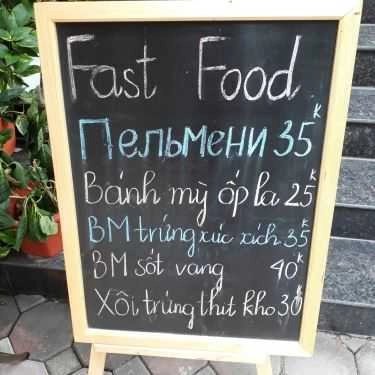 Fast Food
Пельмени 35k
Bánh mỳ ốp la 25k
BM trứng xúc xích 35k
BM sốt vang 40k
Xôi trứng thịt kho 30k